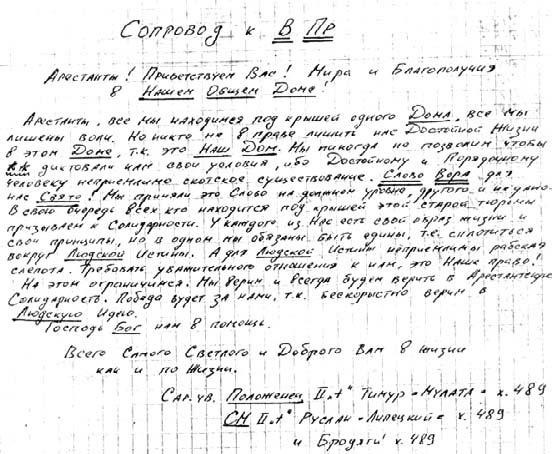 Сопровод к В Пр
Арестанты! Приветствуем Вас! Мира и Благополучия
в Нашем Общем Доме!
Арестанты, все мы находимся под крышей одного Дома, все мы
лишены воли. Но никто не в праве лишить нас Достойной Жизни
в этом Доме, т.к. это Наш Дом. Мы никогда не позволим чтобы
диктовали нам свои условия, ибо Достойному и Порядочному
человеку неприемлимо скотское существование. Слово Вора для
нас Свято! Мы приняли это Слово на должном уровне, другого и не дано.
В свою очередь всех кто находится под крышей этой старой тюрьмы
призываем к Солидарности. У каждого из Нас есть свой образ жизни и
свои принципы, но в одном мы обязаны быть едины, т.е. сплотиться
вокруг Людской Истины. А для Людской Истины неприемлима рабская
слепота. Требовать уважительного отношения к нам, это Наше право!
На этом ограничимся. Мы верим и всегда будем верить в Арестантскую
Солидарность. Победа будет за нами, т.к. бескорыстно верим в
Людскую Идею.
Господь Бог нам в помощь.
Всего Самого Светлого и Доброго Вам в жизни
как и по Жизни.
С ар. ув. Положенец II "т" Тимур-Мулата = х.489
СМ II "т" Руслан-Липецкий = х.489
и Бродяги х.489